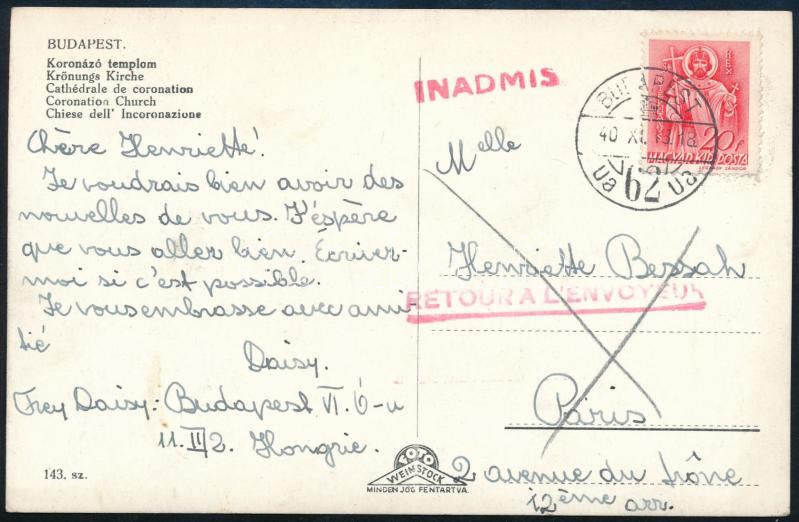 BUDAPEST.
Koronázó templom
Krönungs Kirche
Cathédrale de coronation
Coronation Church
Chiese dell' Incoronazione
Chère Henriette!
Je voudrais bien avoir des
nouvelles de vous. J'éspère
que vous aller bien. Écriver-
moi si c'est possible.
Je vous embrasse avec ami
tié
Daisy.
Frey Daisy: Budapest VI. Ó-u
11. II/2. Hongrie.
143. sz.
INADMIS
BUDAPEST
40 XI. 18
62
Ua Ua
REX
20f
MAGYAR KIR. POSTA
Melle
Henriette Bessah
RETOUR A L'ENVOYEUR
Páris
2 avenue du Trône
12ème arr.
FOTO
WEINSTOCK
MINDEN JOG FENTARTVA.